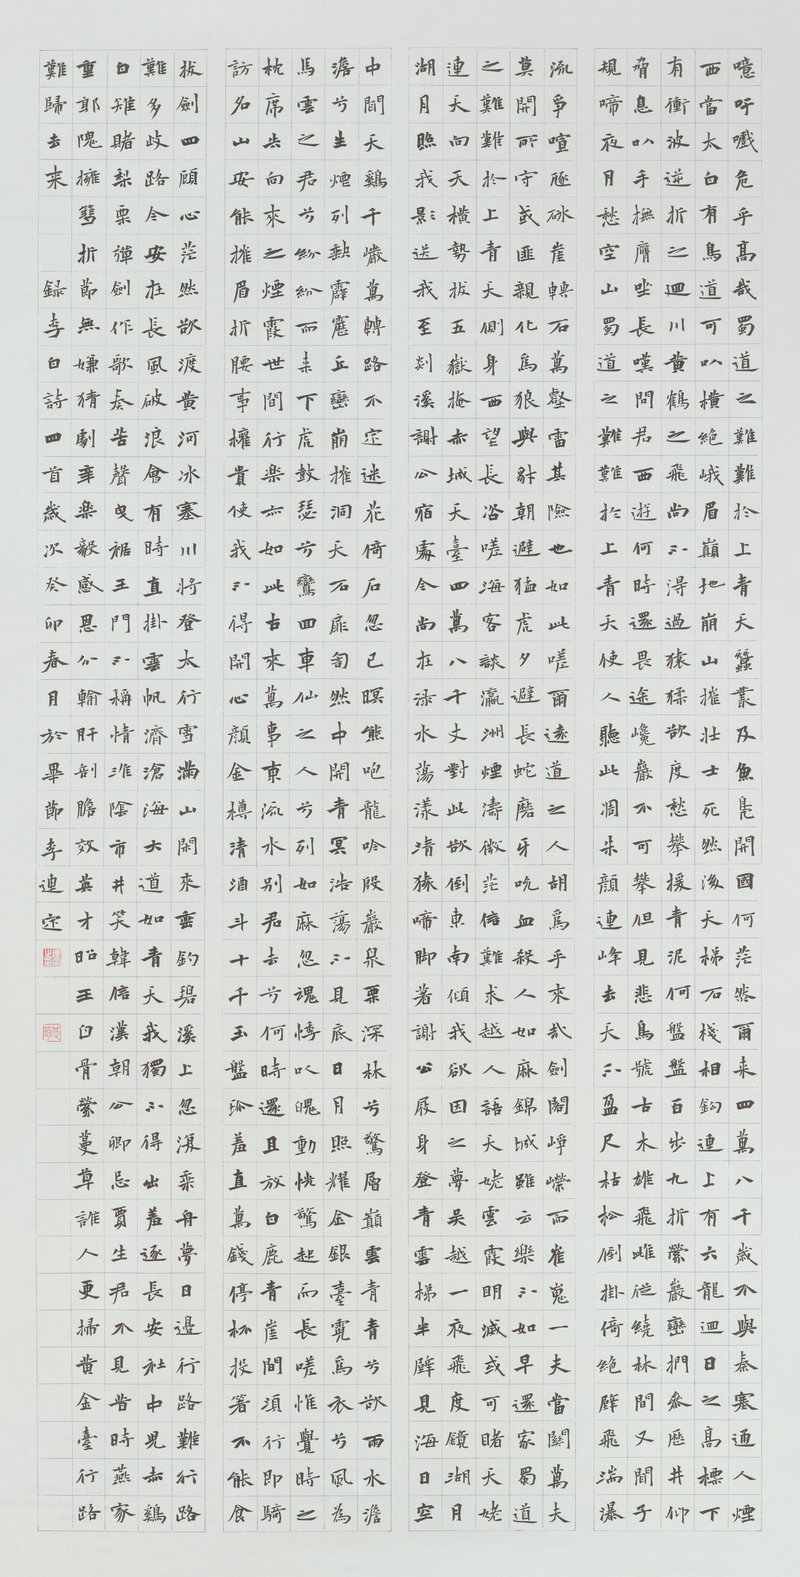 噫吁戲危乎高哉蜀道之難難於上青天蠶叢及魚鳧開國何茫然爾來四萬八千歲不與秦塞通人煙
西當太白有鳥道可以橫絕峨眉巔地崩山摧壯士死然後天梯石棧相鈎連上有六龍迴日之高標下
有衝波逆折之迴川黃鶴之飛尚不得過猿猱欲度愁攀援青泥何盤盤百步九折縈巖巒捫參歷井仰
脅息以手撫膺坐長嘆問君西遊何時還畏途巉巖不可攀但見悲鳥號古木雄飛雌從繞林間又聞子
規啼夜月愁空山蜀道之難難於上青天使人聽此凋朱顏連峰去天不盈尺枯松倒掛倚絕壁飛湍瀑
流爭喧豗砯崖轉石萬壑雷其險也如此嗟爾遠道之人胡爲乎來哉劍閣崢嶸而崔嵬一夫當關萬夫
莫開所守或匪親化爲狼與豺朝避猛虎夕避長蛇磨牙吮血殺人如麻錦城雖云樂不如早還家蜀道
之難難於上青天側身西望長咨嗟海客談瀛洲煙濤微茫信難求越人語天姥雲霞明滅或可睹天姥
連天向天橫勢拔五嶽掩赤城天臺四萬八千丈對此欲倒東南傾我欲因之夢吳越一夜飛度鏡湖月
湖月照我影送我至剡溪謝公宿處今尚在淥水蕩漾清猿啼脚著謝公屐身登青雲梯半壁見海日空
中聞天雞千巖萬轉路不定迷花倚石忽已暝熊咆龍吟殷巖泉栗深林兮驚層巔雲青青兮欲雨水澹
澹兮生煙列缺霹靂丘巒崩摧洞天石扉訇然中開青冥浩蕩不見底日月照耀金銀臺霓爲衣兮風為
馬雲之君兮紛紛而來下虎鼓瑟兮鸞回車仙之人兮列如麻忽魂悸以魄動恍驚起而長嗟惟覺時之
枕席失向來之煙霞世間行樂亦如此古來萬事東流水別君去兮何時還且放白鹿青崖間須行即騎
訪名山安能摧眉折腰事權貴使我不得開心顏金樽清酒斗十千玉盤珍羞直萬錢停杯投箸不能食
拔劍四顧心茫然欲渡黃河冰塞川將登太行雪滿山閑來垂釣碧溪上忽復乘舟夢日邊行路難行路
難多歧路今安在長風破浪會有時直掛雲帆濟滄海大道如青天我獨不得出羞逐長安社中兒赤雞
白雉賭梨栗彈劍作歌奏苦聲曳裾王門不稱情淮陰市井笑韓信漢朝公卿忌賈生君不見昔時燕家
重郭隗擁篲折節無嫌猜劇辛樂毅感恩分輸肝剖膽效英才昭王白骨縈蔓草誰人更掃黃金臺行路
難歸去來 錄李白詩四首歲次癸卯春月於畢節李連定